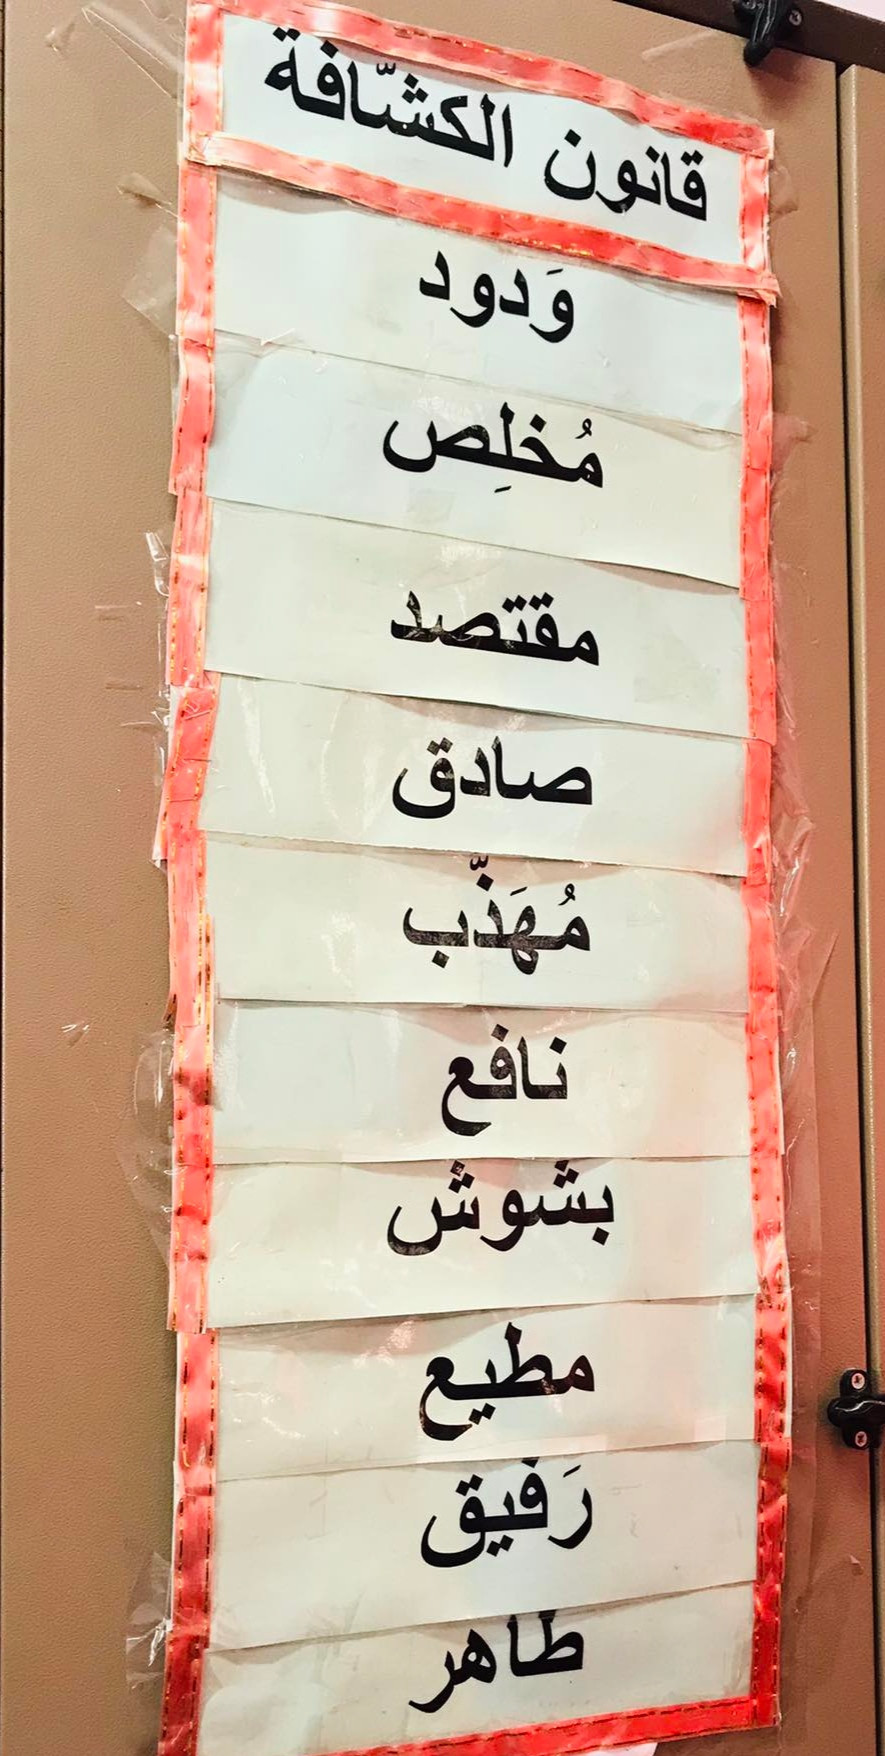 قانون الكشّافة
وَدود
مُخلِص
مقتصد
صادق
مُهَذّب
نافع
بشوش
مطيع
رَفيق
طاهر